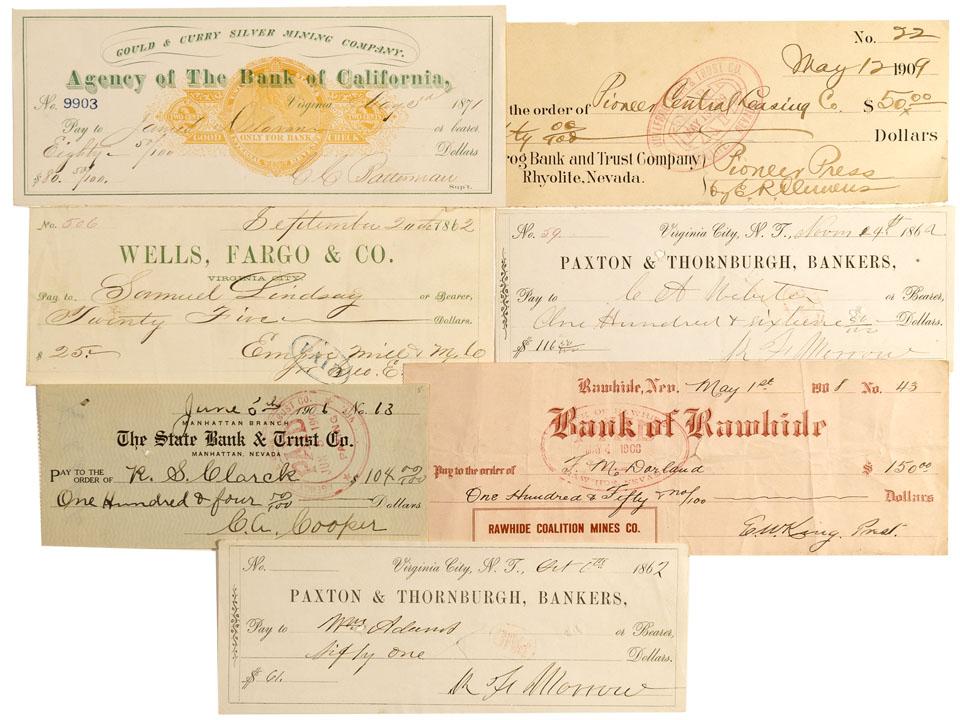 GOULD & CURRY SILVER MINING COMPANY.
Agency of The Bank of California,
No. 9903 Virginia 1871
Pay to or bearer
Eighty 50/100 Dollars
$80. 50/100. Supt.
GOOD ONLY FOR BANK CHECK
No. 22
May 12 1909
the order of Pioneer Central Leasing Co. $50.00
ty 00/100 Dollars
rog Bank and Trust Company
Rhyolite, Nevada. Pioneer Press
by
No. 506 September 1862
WELLS, FARGO & CO.
VIRGINIA CITY
Pay to Samuel Lindsay or Bearer,
Twenty Five Dollars.
$ 25
PAID
No. 59 Virginia City, N. T., 186
PAXTON & THORNBURGH, BANKERS,
Pay to C A Webster or Bearer,
One Hundred & sixteen Dollars.
$ 116
June 190 No. 13
MANHATTAN BRANCH
The State Bank & Trust Co.
MANHATTAN, NEVADA
PAY TO THE ORDER OF R. S. Clarck $ 104 00/100
One Hundred & four 00/100 Dollars
C. A. Cooper
PAID
Rawhide, Nev. May 1st 1908 No. 43
Bank of Rawhide
Pay to the order of Dorland $ 150.00
One Hundred & Fifty no/100 Dollars
RAWHIDE COALITION MINES CO. E. W. King, Prest.
No. Virginia City, N. T., Oct 1862
PAXTON & THORNBURGH, BANKERS,
Pay to Wm Adams or Bearer,
Sixty one Dollars.
$ 61.